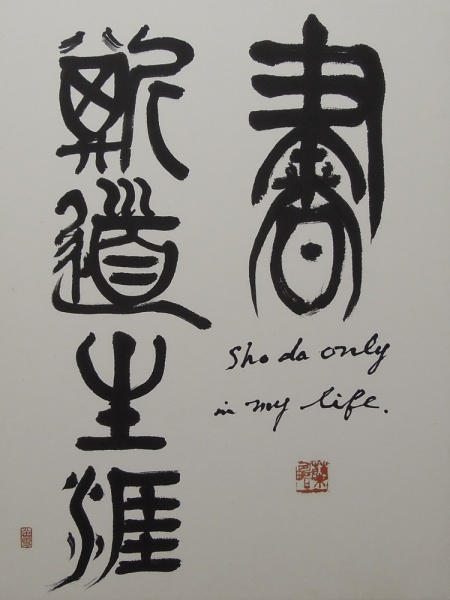 書
斯道生涯
Sho da only
in my life.